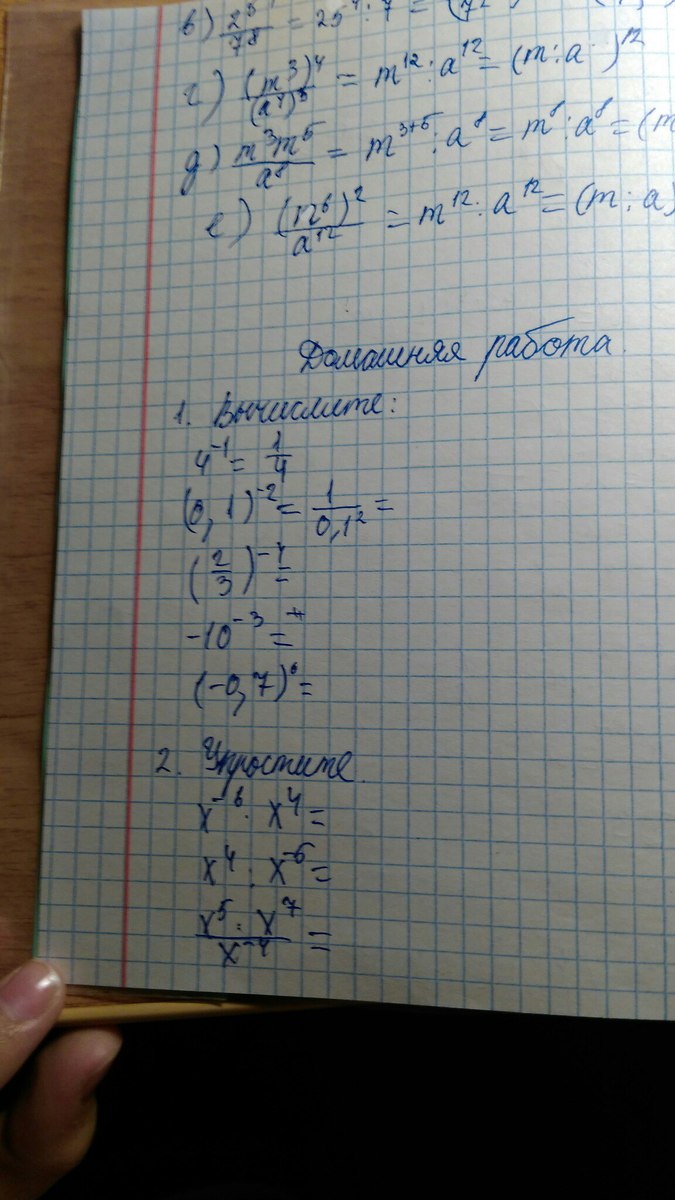 в) 25⁴/7⁸ = 25⁴ : 7 = (
г) (m³)⁴/(a⁴)³ = m¹² : a¹² = (m : a)¹²
д) m³m⁵/a⁸ = m³⁺⁵ : a⁸ = m⁸ : a⁸ = (m
е) (m⁶)²/a¹² = m¹² : a¹² = (m : a)
Домашняя работа.
1. Вычислите:
4⁻¹ = 1/4
(0,1)⁻² = 1/0,1² =
(2/3)⁻⁴ =
-10⁻³ =
(-0,7)⁰ =
2. Упростите.
x⁻⁶ · x⁴ =
x⁴ : x⁻⁶ =
x⁵ : x⁷/x⁻⁴ =